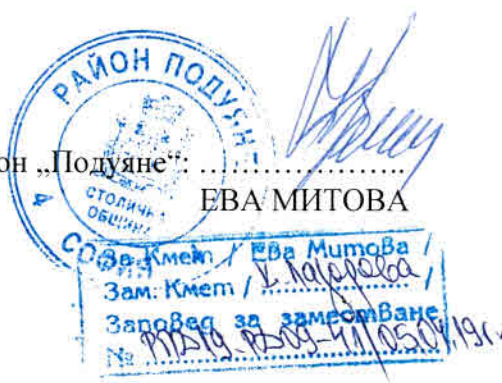 РАЙОН ПОДУЯНЕ
СТОЛИЧНА
ОБЩИНА
СОФИЯ
он „Подуяне“: ......................
ЕВА МИТОВА
За Кмет / Ева Митова /
Зам. Кмет / ...................... /
Заповед за заместване
№